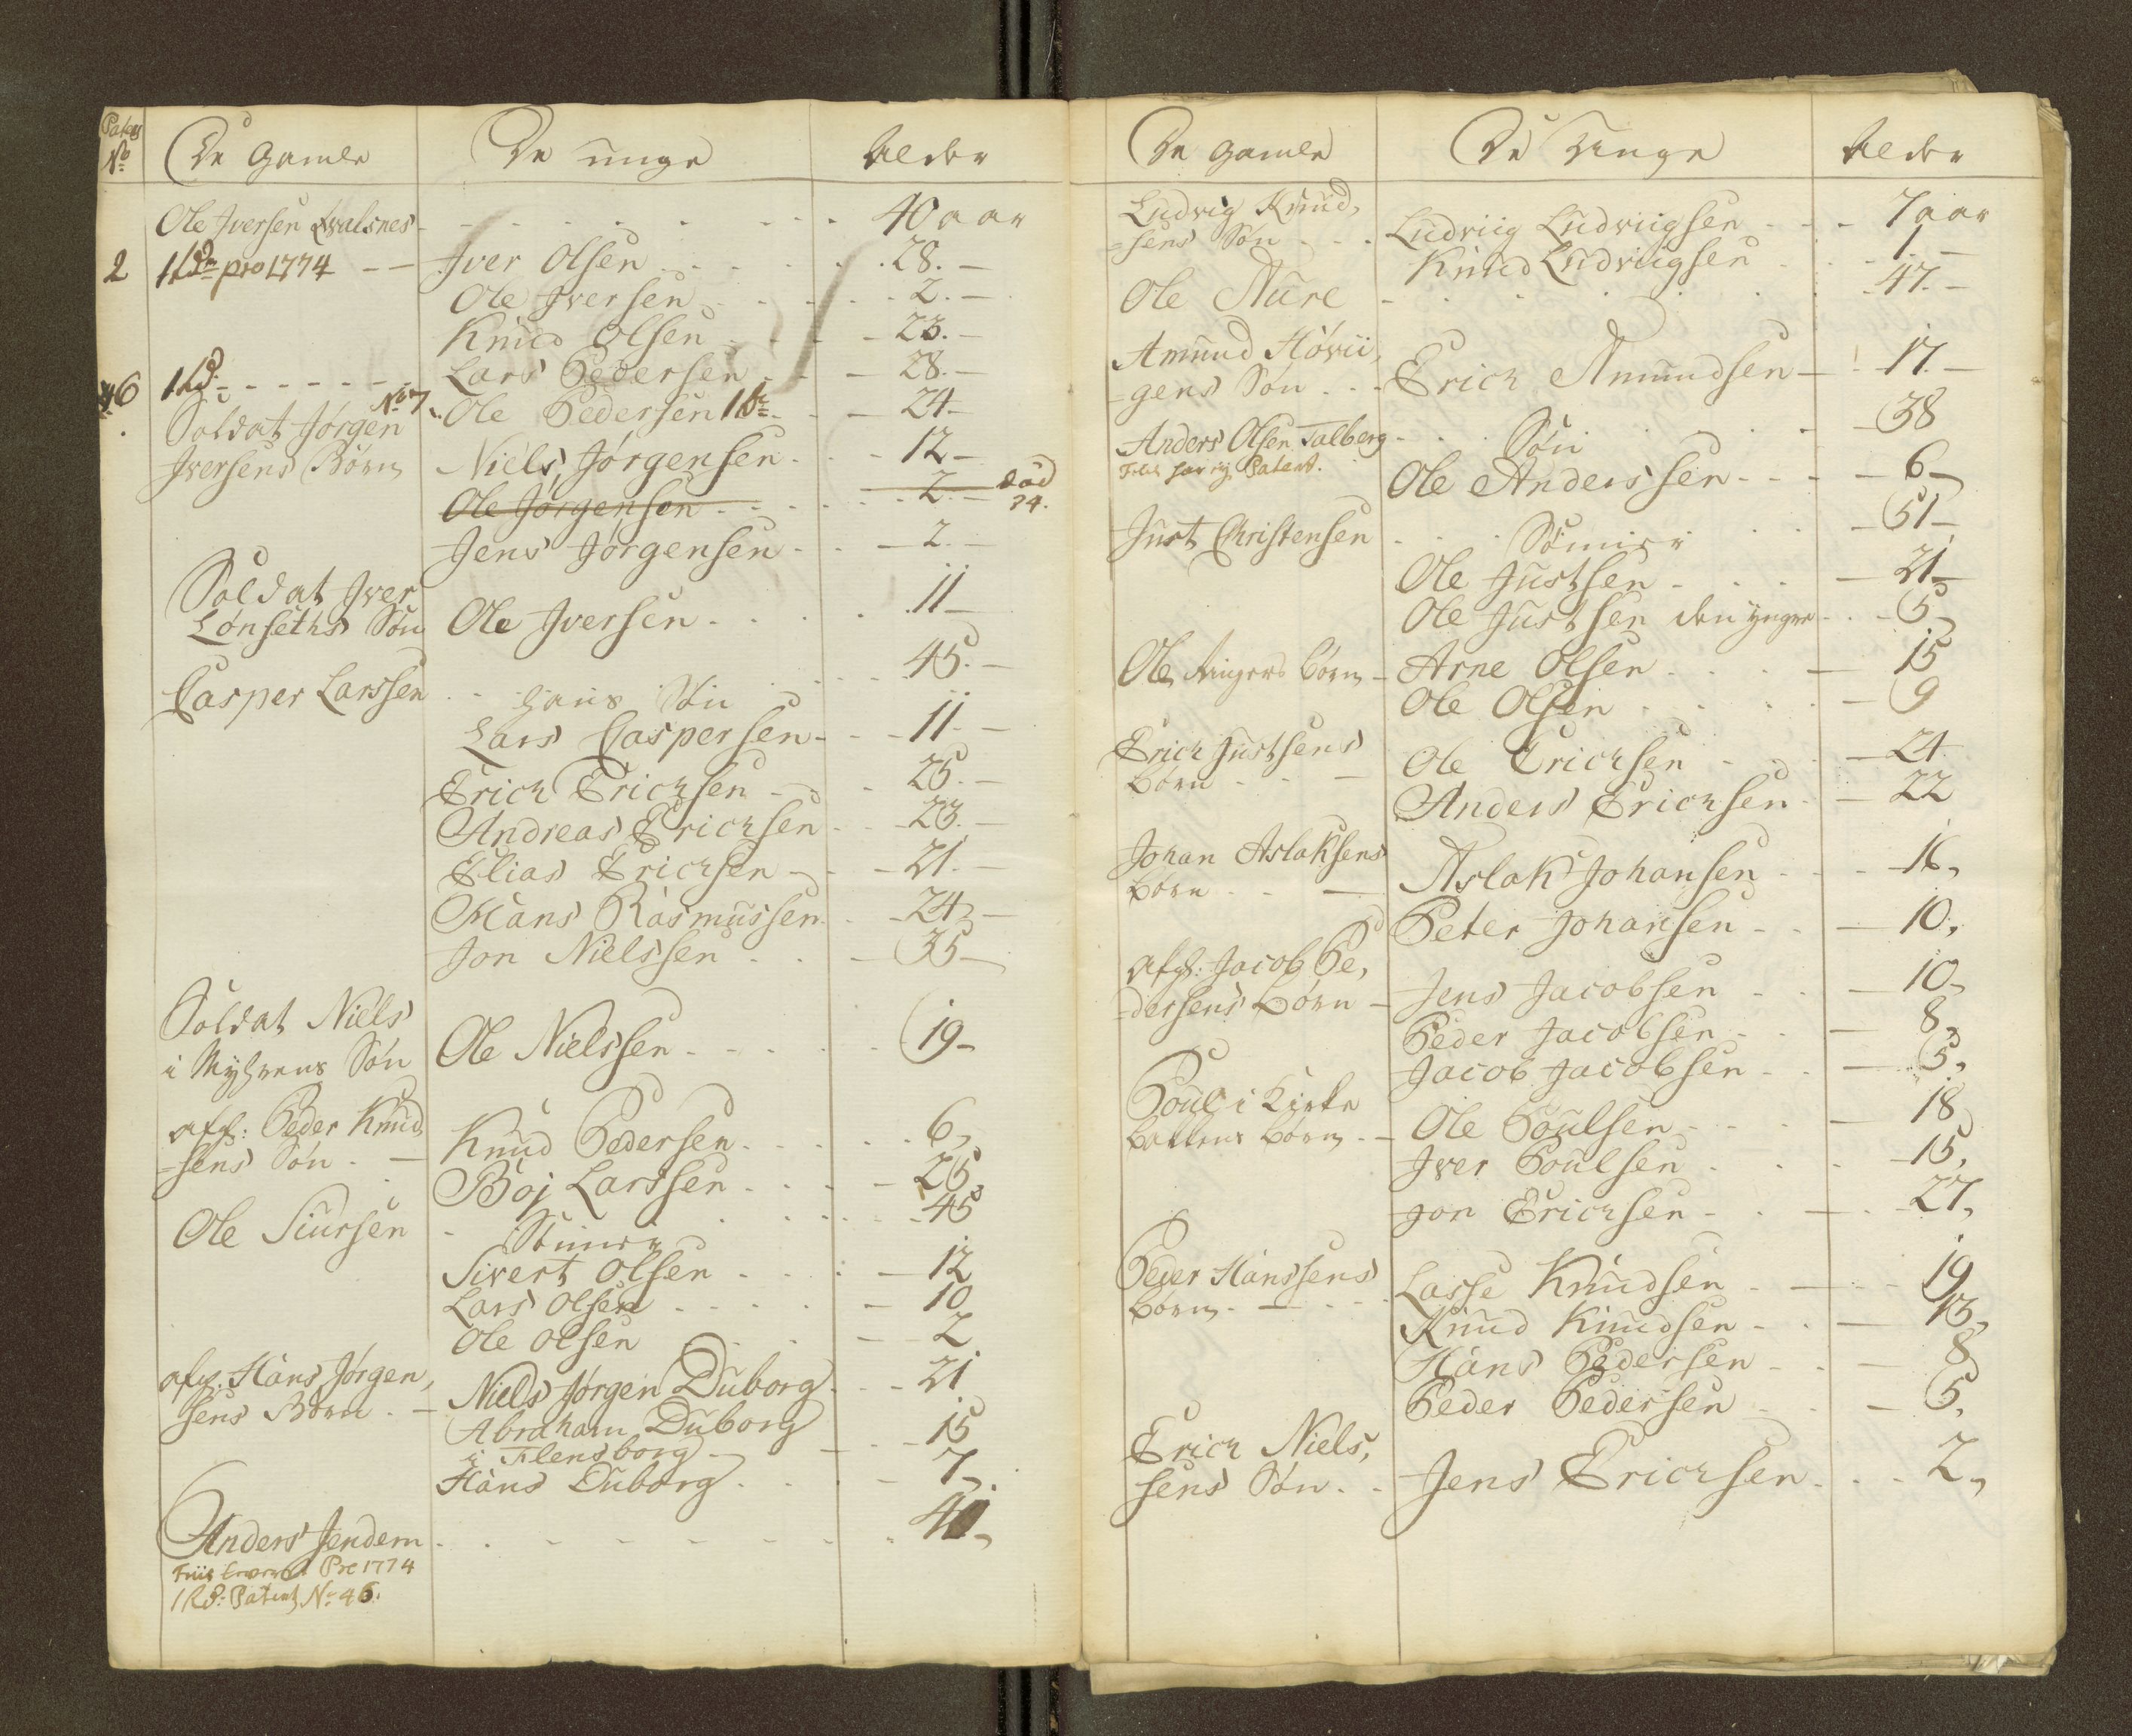 Patent
No De Gamle De unge Alder
Ole Iversen Qvalsnes - - - - - - - 40 aar
2 1 Rd pro 1774 - - Iver Olsen - - - - - 28. -
Ole Iversen - - - - 2. -
Knud Olsen - - - 23. -
46 1 Rd - - - - - - Lars Pedersen - - - 28. -
Soldat Jørgen No 7 Ole Pedersen - - 24 -
Iversens Børn Niels Jørgensen - - - 12 -
Ole Jørgensen - - - - - 2. - død 74.
Jens Jørgensen - - - 2. -
Soldat Iver
Lønseths Søn Ole Iversen - - - - 11 -
Casper Larssen - - - - - - 45. -
hans Søn
Lars Caspersen - - - 11. -
Erich Erichsen - - - 25. -
Andreas Erichsen - - 23. -
Elias Erichsen - - - 21. -
Hans Rasmussen - - 24 -
Jon Nielssen - - - 35 -
Soldat Niels
i Myhrens Søn Ole Nielssen - - - - - 19 -
afg: Peder Knud
=sens Søn - - Knud Pedersen - - - - - 6,
Boj Larssen - - - - 26,
Ole Siursen - - - - - - - 45
Sønner
Sivert Olsen - - - - 12
Lars Olsen - - - - - 10
Ole Olsen - - - 2
afg. Hans Jørgen,
sens Børn - - Niels Jørgen Duborg - - 21
Abraham Duborg
i Flensborg - - - 15
Hans Duborg - - - 7,
Anders Jendem - - - - - - - - 40,
Pro 1774
1 Rd: Patent No 46.
De Gamle De Unge Alder
Ludvig Knud,
=sens Søn - - - Ludviig Ludviigsen - - - 7 aar
Knud Ludviigsen - - - 1 -
Ole Aure - - - - - - - 47. -
Amund Høvii,
=gens Søn - - - Erich Amundsen - - 17. -
Anders Olsen Talberg - - - - - - 38
har ey Patent. Søn
Ole Anderssen - - - - 6 -
Just Christensen - - - - - - 51 -
Sønner
Ole Justsen - - - - 21 -
Ole Justsen den yngre - - 5 -
Ole Børn - Arne Olsen - - - - 15
Ole Olsen - - - - 9
Erich Justsens
Børn - - - Ole Erichsen - - - 24
Anders Erichsen - - 22
Johan Aslaksens
Børn - - - Aslak Johansen - - - 16,
Peter Johansen - - - 10,
afg: Jacob Pe,
=dersens Børn - Jens Jacobsen - - - 10,
Peder Jacobsen - - - 8,
Jacob Jacobsen - - - 5,
Poul i Kirke
bakkens Børn - - Ole Poulsen - - - - 18
Iver Poulsen - - - 15,
Jon Erichsen - - - - 27,
Peder Hanssens
Børn - - - - Lasse Knudsen - - - 19
Knud Knudsen - - - 13,
Hans Pedersen - - - 8
Peder Pedersen - - - 5,
Erich Niels,
sens Søn - - Jens Erichsen - - - 2,